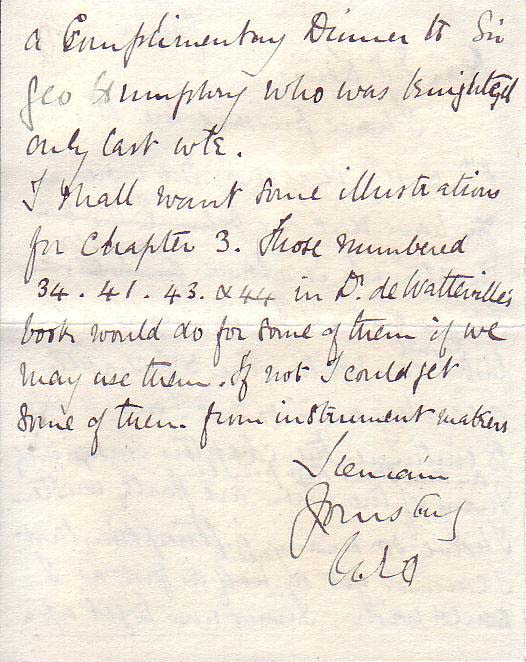 a Complimentary Dinner to Sir
Geo Humphry who was knighted
only last wk.
I shall want some illustrations
for Chapter 3. Those numbered
34. 41. 43. & 44 in Dr de Watteville's
book would do for some of them if we
may use them. If not I could get
some of them from instrument makers
I remain
Yours truly